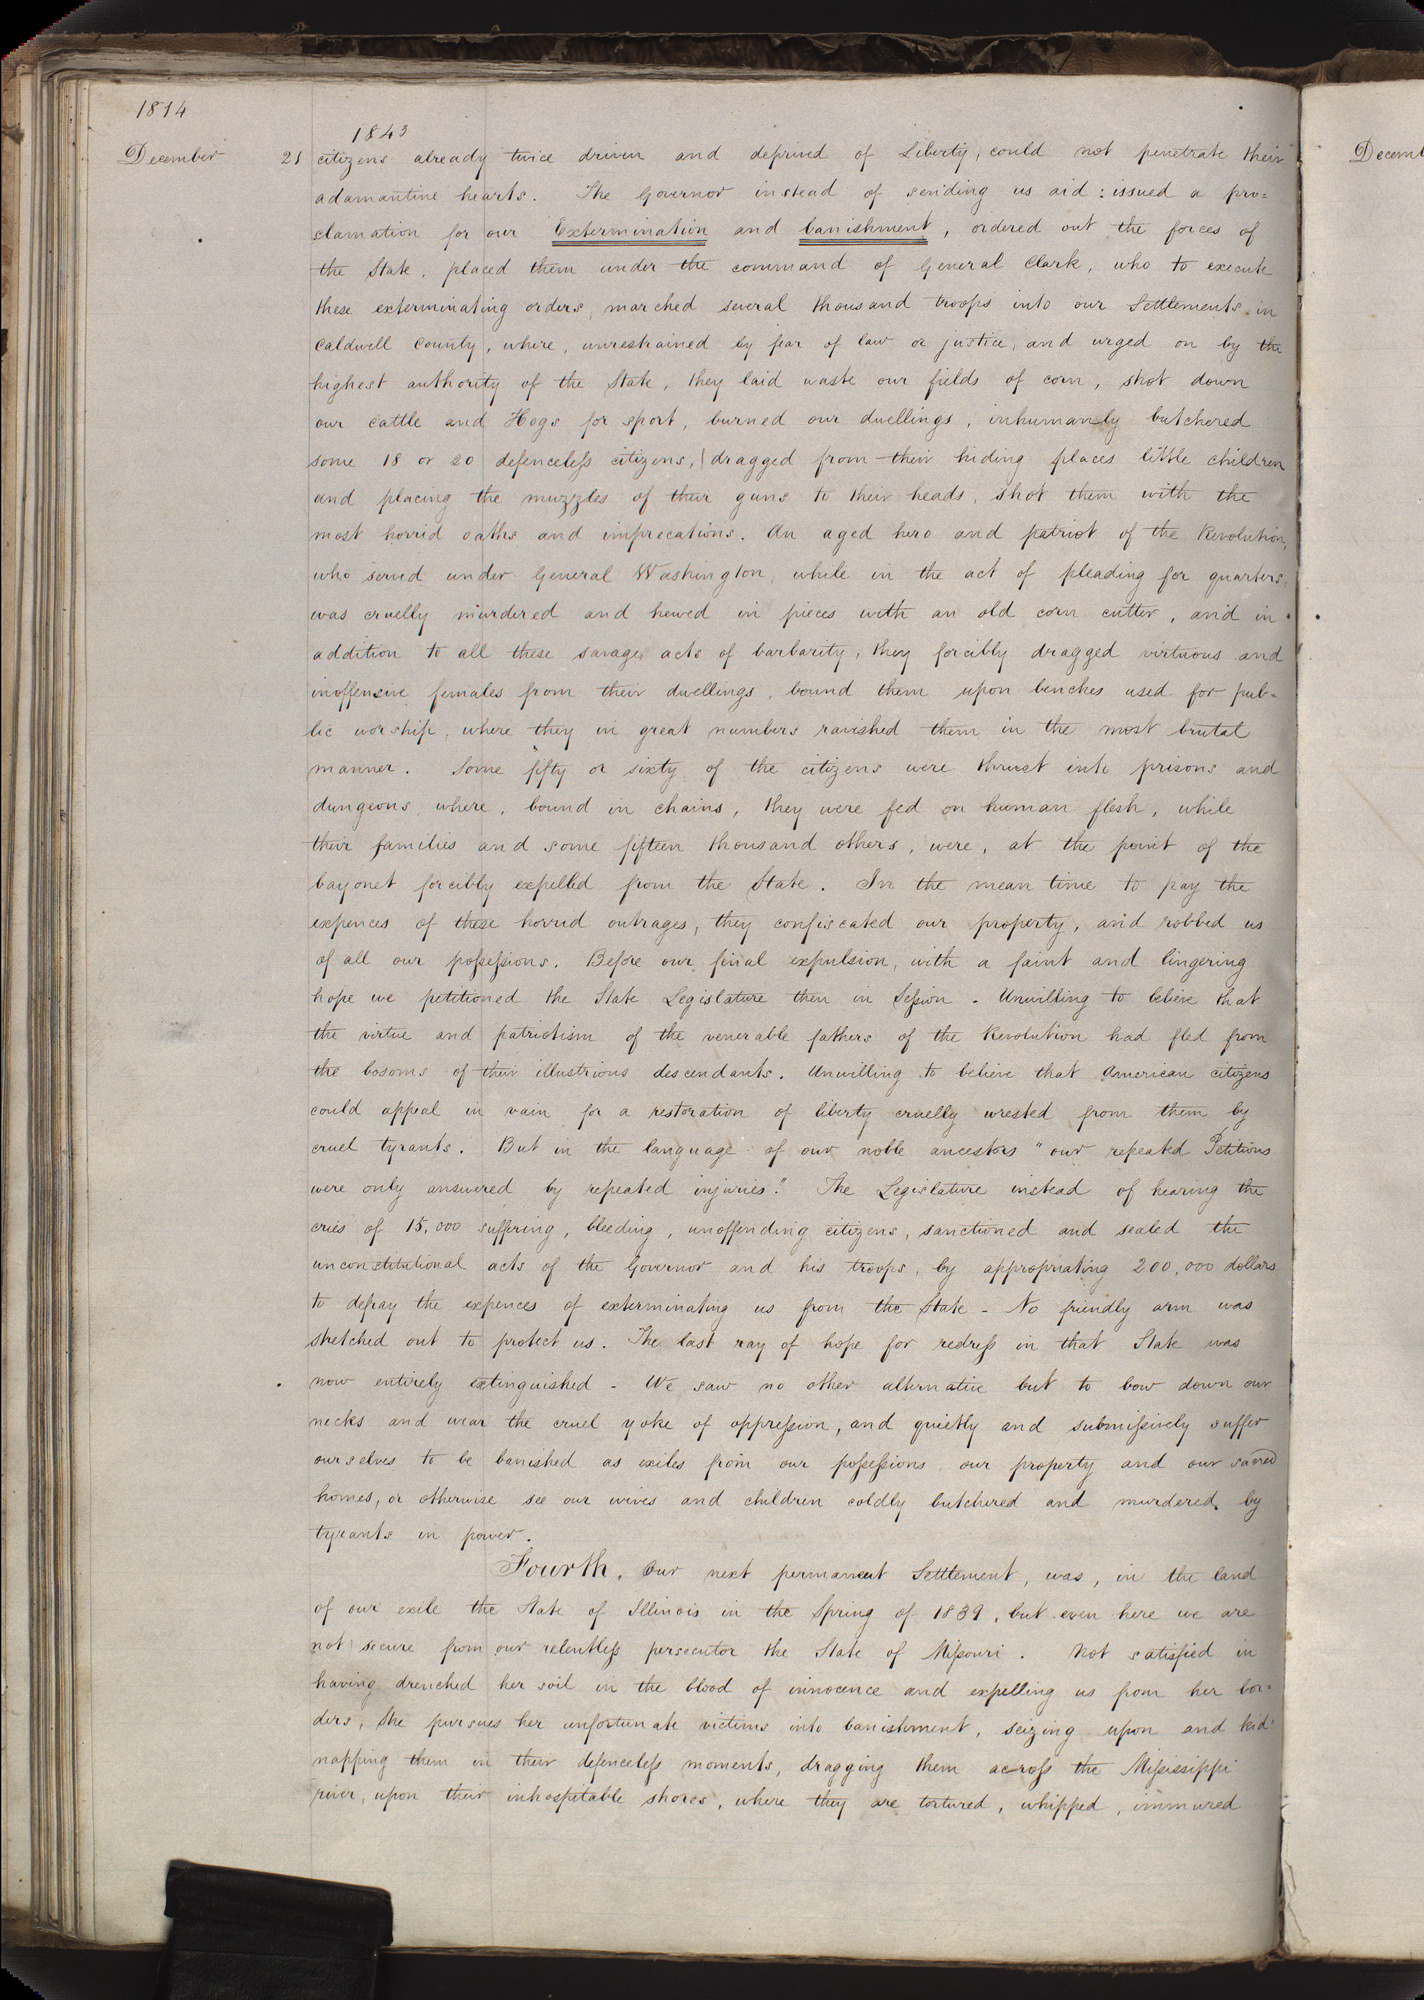 1814
1843
December 21 citizens already twice driven and deprived of Liberty, could not penetrate their
adamantine hearts. The Governor instead of sending us aid: issued a pro=
clamation for our Extermination and banishment, ordered out the forces of
the State, placed them under the command of General Clark, who to execute
these exterminating orders, marched several thousand troops into our Settlements in
Caldwell County, where, unrestrained by fear of law or justice, and urged on by the
highest authority of the State, they laid waste our fields of corn, shot down
our cattle and Hogs for sport, burned our dwellings, inhumanly butchered
some 18 or 20 defenceless citizens, dragged from their hiding places little children
and placing the muzzles of their guns to their heads, shot them with the
most horrid oaths and imprecations. An aged hero and patriot of the Revolution,
who served under General Washington, while in the act of pleading for quarters,
was cruelly murdered and hewed in pieces with an old corn cutter, and in
addition to all these savage acts of barbarity, they forcibly dragged virtuous and
inoffensive females from their dwellings, bound them upon benches used for pub=
lic worship, where they in great numbers ravished them in the most brutal
manner. Some fifty or sixty of the citizens were thrust into prisons and
dungeons, where, bound in chains, they were fed on human flesh, while
their families and some fifteen thousand others, were, at the point of the
bayonet forcibly expelled from the State. In the mean time to pay the
expences of these horrid outrages, they confiscated our property, and robbed us
of all our possessions. Before our final expulsion, with a faint and lingering
hope we petitioned the State Legislature then in Session - Unwilling to believe that
the virtue and patriotism of the venerable fathers of the Revolution had fled from
the bosoms of their illustrious descendants. Unwilling to believe that American citizens
could appeal in vain for a restoration of liberty cruelly wrested from them by
cruel tyrants. But in the language of our noble ancestors "our repeated Petitions
were only answered by repeated injuries." The Legislature instead of hearing the
cries of 15,000 suffering, bleeding, unoffending citizens, sanctioned and sealed the
unconstitutional acts of the Governor and his troops, by appropriating 200,000 dollars
to defray the expences of exterminating us from the State - No friendly arm was
stretched out to protect us. The last ray of hope for redress in that State was
now entirely extinguished - We saw no other alternative but to bow down our
necks and wear the cruel yoke of oppression, and quietly and submissively suffer
ourselves to be banished as exiles from our possessions, our property and our sacred
homes, or otherwise see our wives and children coldly butchered and murdered by
tyrants in power.
Fourth. Our next permanent Settlement, was, in the land
of our exile the State of Illinois in the Spring of 1839, but even here we are
not secure from our relentless persecutor the State of Missouri. Not satisfied in
having drenched her soil in the blood of innocence and expelling us from her bor=
ders, She pursues her unfortunate victims into banishment, seizing upon and kid=
napping them in their defenceless moments, dragging them across the Mississippi
river, upon their inhospitable shores, where they are tortured, whipped, immured
Decemb